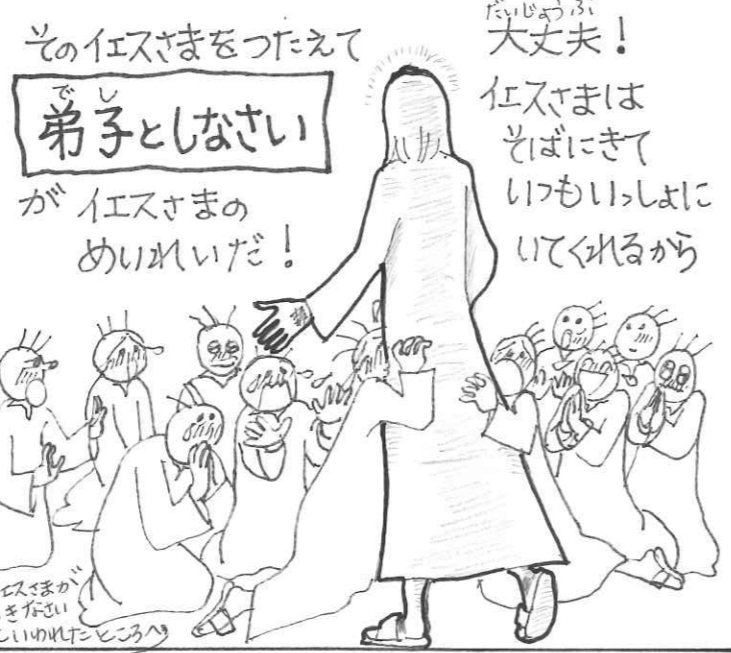 そのイエスさまをつたえて
でし
弟子としなさい
が イエスさまの
めいれいだ!
だいじょうぶ
大丈夫!
イエスさまは
そばにきて
いつもいっしょに
いてくれるから
エスさまが
きなさい
いわれたところへ